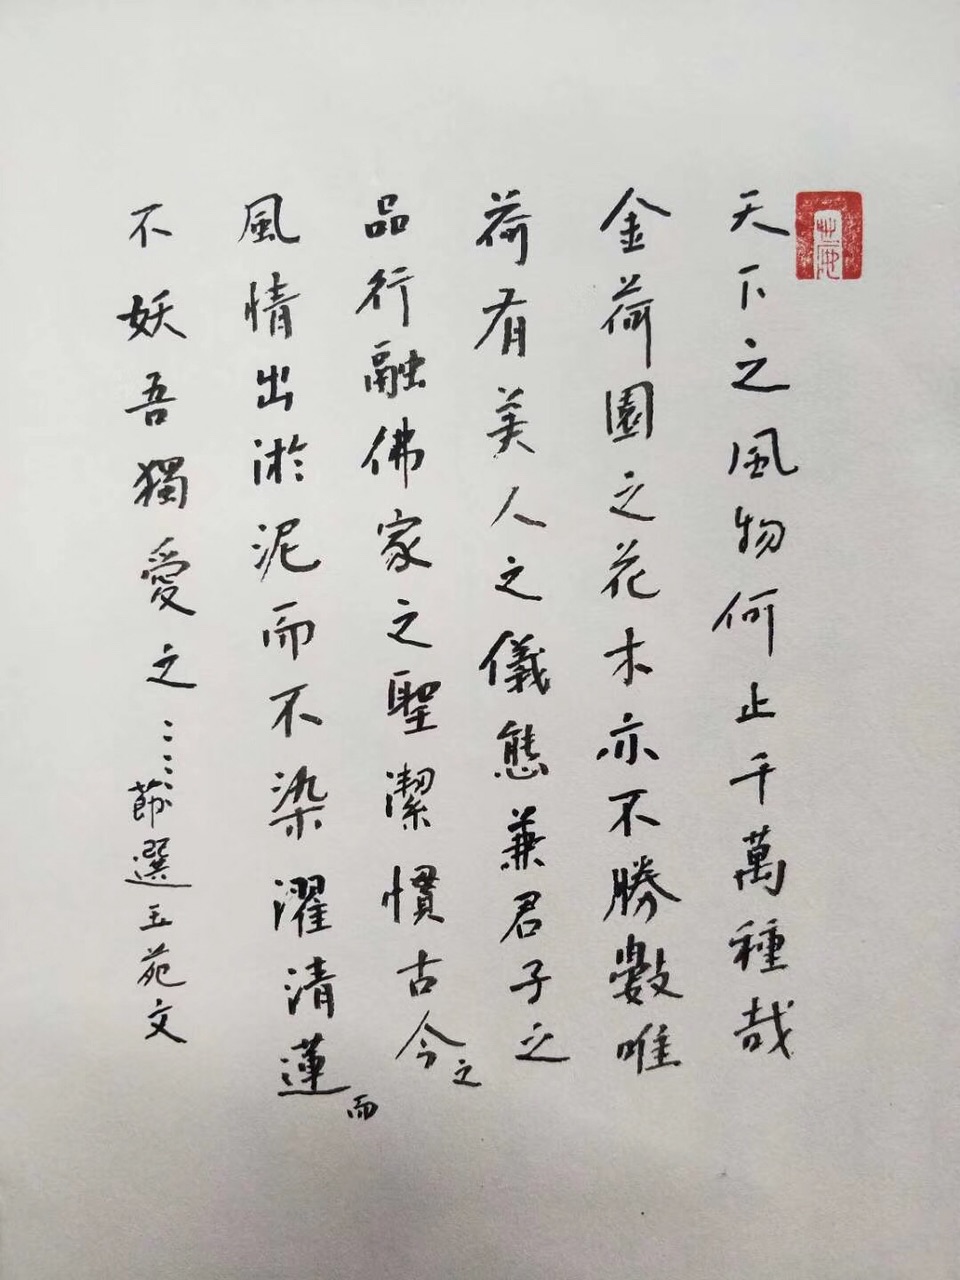 天下之風物何止千萬種哉
金荷園之花木亦不勝數唯
荷有美人之儀態兼君子之
品行融佛家之聖潔慣古今之
風情出淤泥而不染濯清蓮而
不妖吾獨愛之……節選玉苑文